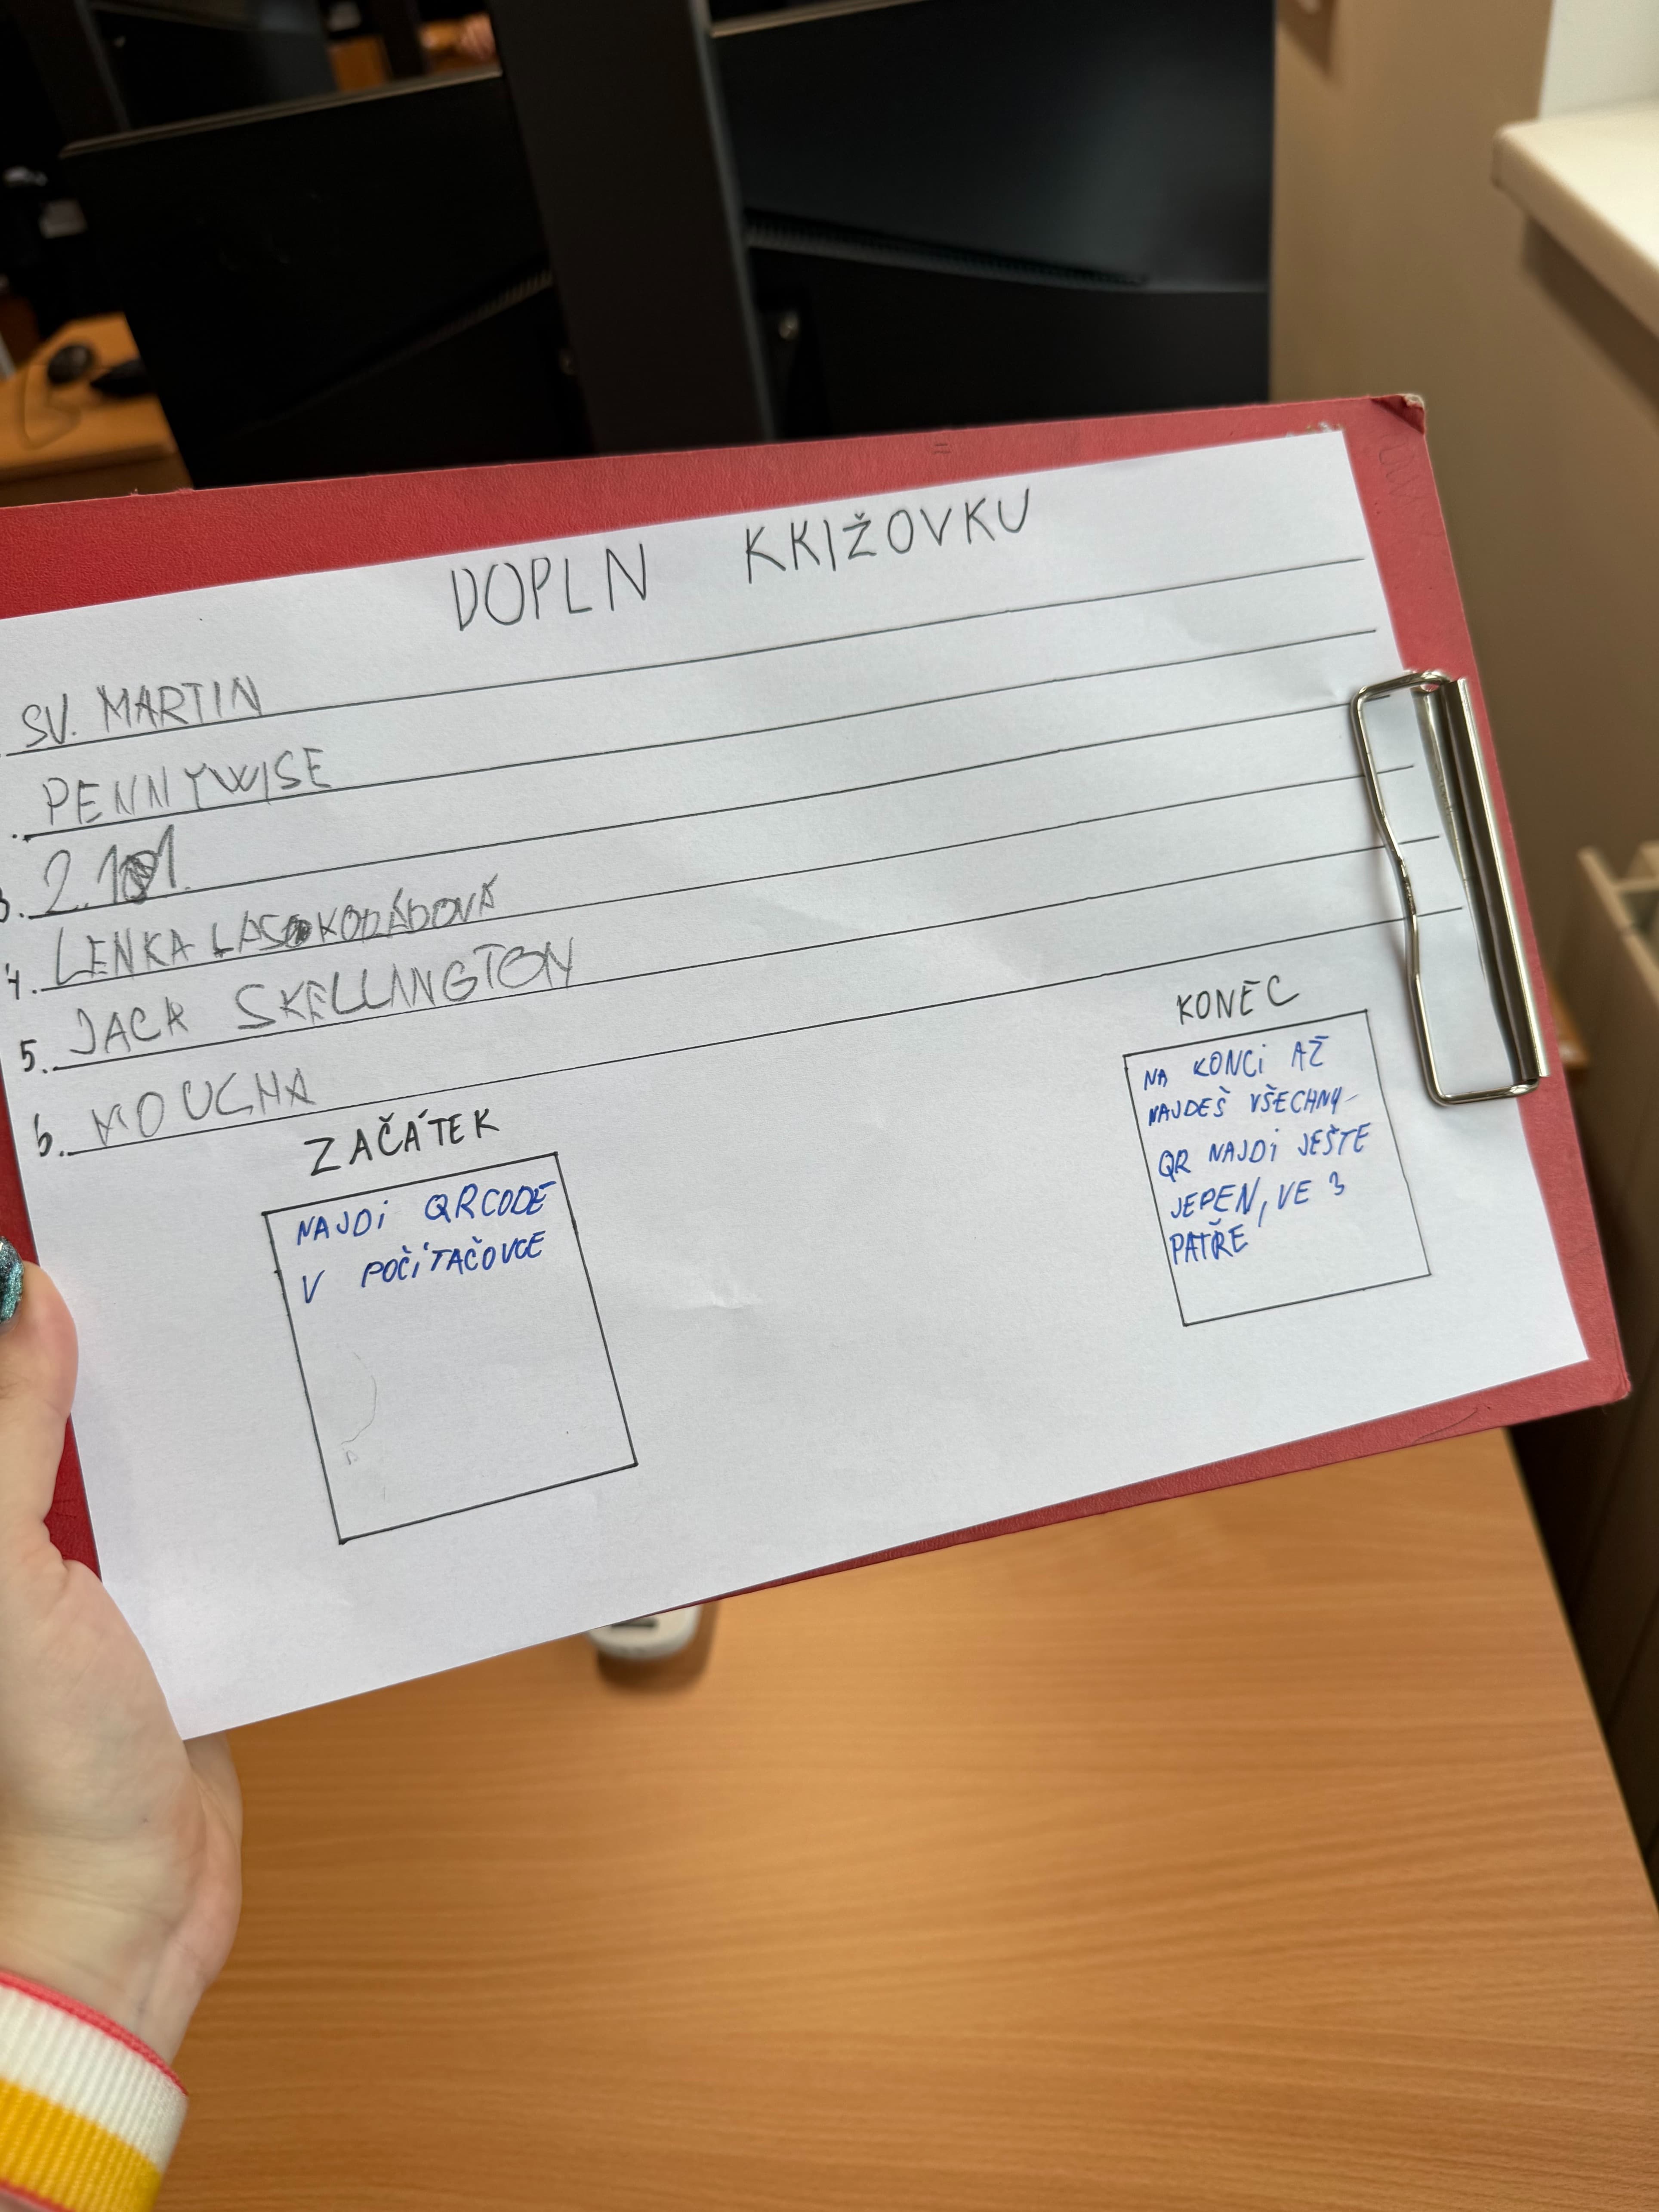 DOPLN KŘIŽOVKU
SV. MARTIN
PENNYWISE
3. 2.11.
4. LENKA
5. JACK SKELLINGTON
6. MOUCHA
ZAČÁTEK
NAJDI QRCODE
V POČÍTAČOVCE
KONEC
NA KONCI AŽ
NAJDEŠ VŠECHNY
QR NAJDI JEŠTĚ
JEDEN, VE 3
PATŘE